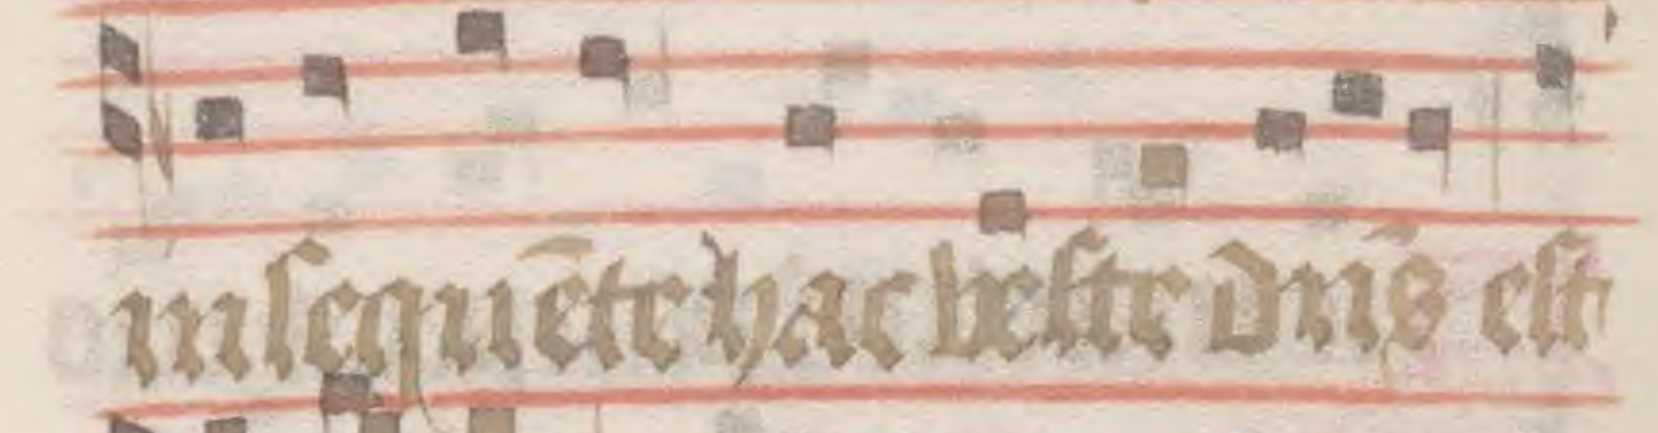 insequēte hac veste dn̄s est